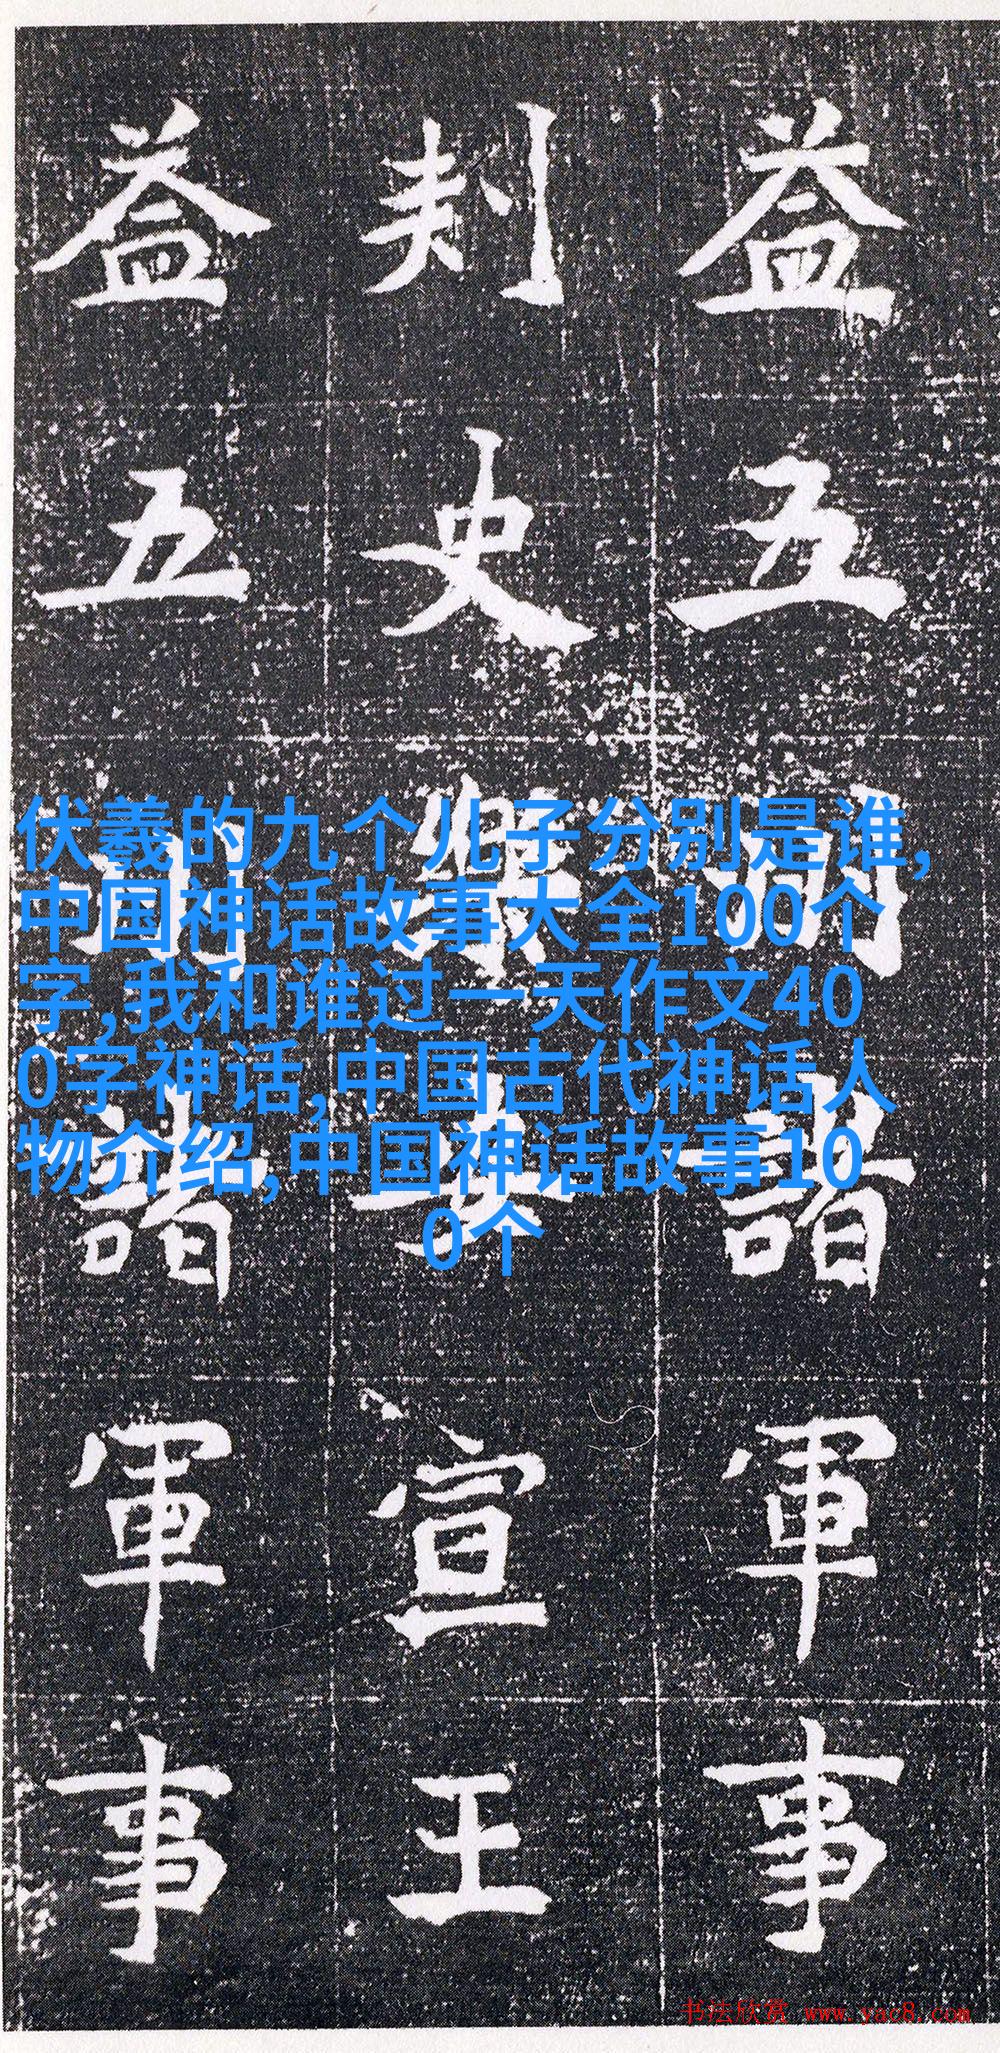 益五諸軍事
刾史宣王
益五諸軍事
伏羲的九个儿子分别是谁,
中国神话故事大全100个
字,我和谁过一天作文40
0字神话,中国古代神话人
物介绍,中国神话故事10
0个
书法欣赏 www.yac8.com